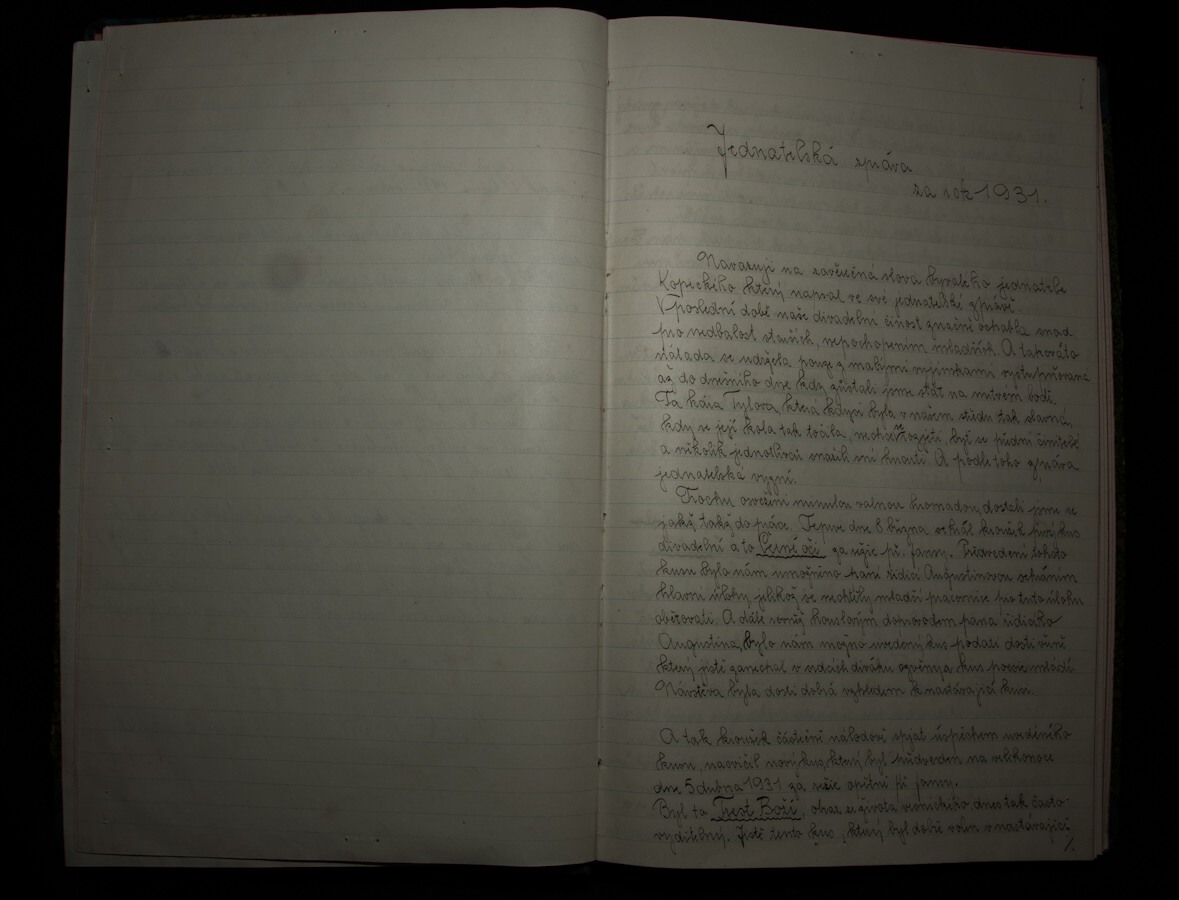 Jednatelská zpráva
za rok 1931.
Navazuji na závěrečná slova bývalého jednatele
Kopeckého který napsal ve své jednatelské zprávě.
V poslední době naše divadelní činost značně ochabla snad
pro nedbalost starších, nepochopením mladších. A takováto
nálada se udržela pouze z malými vyjímkami vystupňovaná
až do dnešního dne kdy zůstali jsme stát na mrtvém bodě.
Ta kára Tylova, která kdysi byla v našem středu tak slavná,
kdy se její kola tak točila, nechce rozjeti, byť se přední činitelé
a několik jednotlivců snažili sní hnouti. A podle toho zpráva
jednatelská vyzní.
Trochu osvěžení minulou valnou hromadou, dostali jsme se
jakž takž do práce. Teprve dne 8 března sehrál kroužek prvý kus
divadelní a to Černé oči za režie př. Janny. Předvedení tohoto
kusu bylo nám umožněno paní řídící Augustinovou sehráním
hlavní úlohy, jelikož se nechtěly mladší pracovnice pro tuto úlohu
obětovati. A dále rovněž houslovým doprovodem pana řídícího
Augustina, bylo nám možno uvedený kus podati dosti věrně
který jistě zanechal v srdcích diváku ozvěny a kus poesie mládí.
Návštěva byla dosti dobrá vzhledem k nastávající krisi.
A tak kroužek částečně náladově spjat úspěchem uvedeného
kusu, nacvičil nový kus, který byl předveden na velikonoce
dne 5 dubna 1931 za režie opětně př Janny.
Byl to Trest Boží, obraz ze života vesnického dnes tak často
vyditelný. Jistě tento kus, který byl dobře volen v nastávající
./.